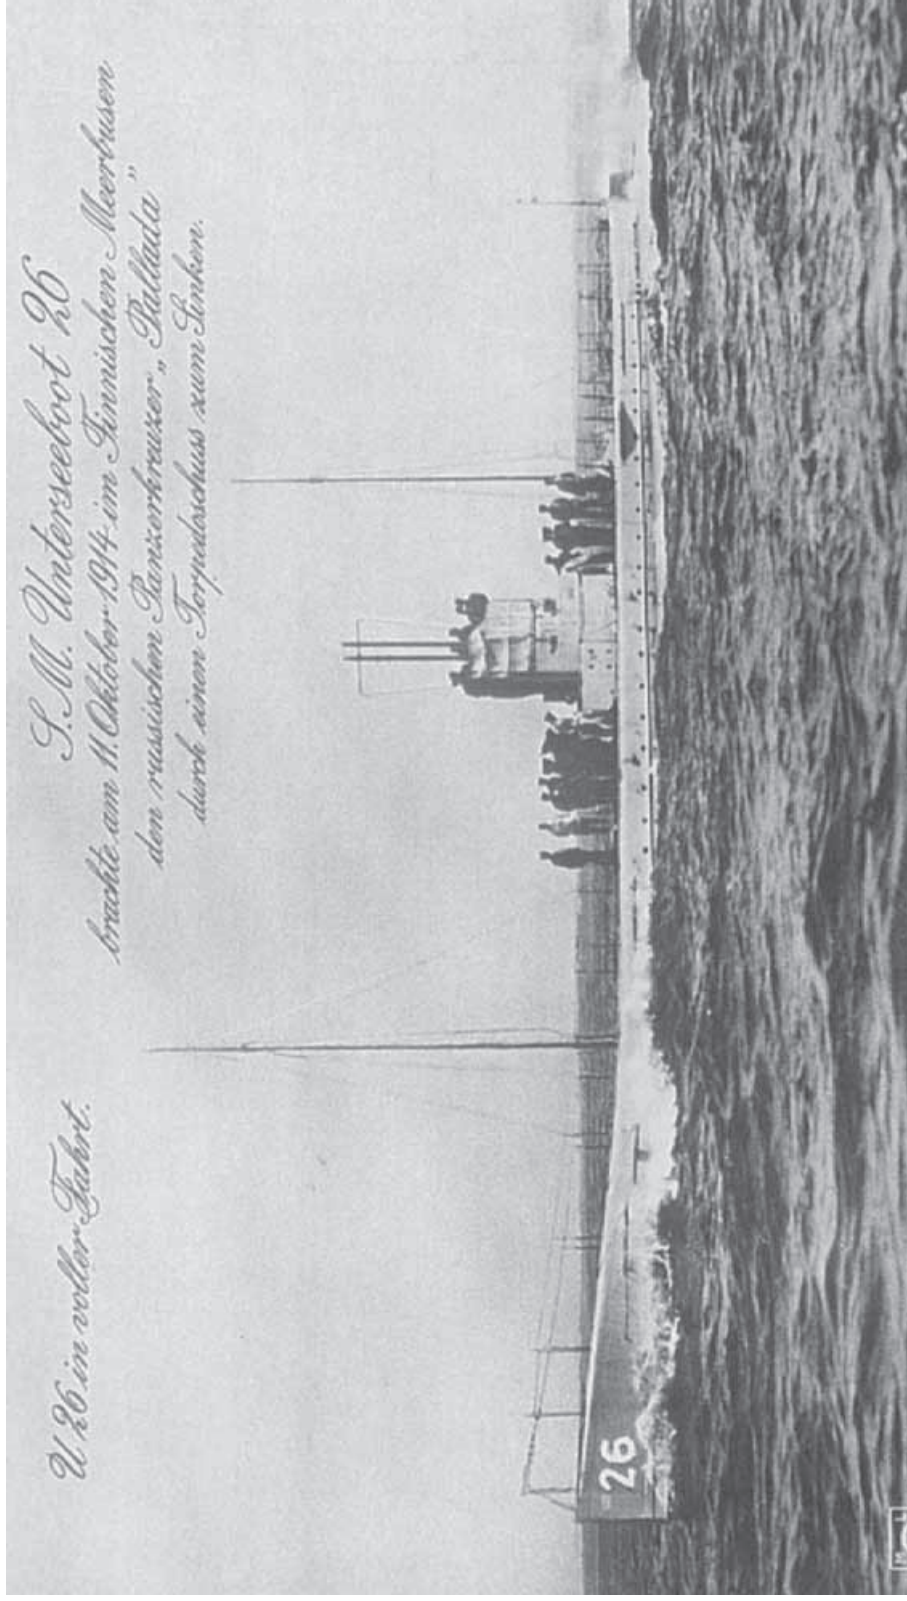 U 26 in voller Fahrt.
S. M. Unterseeboot 26
brachte am 11. Oktober 1914 im Finnischen Meerbusen
den russischen Panzerkreuzer „Pallada”
durch einen Torpedoschuss zum Sinken.
26